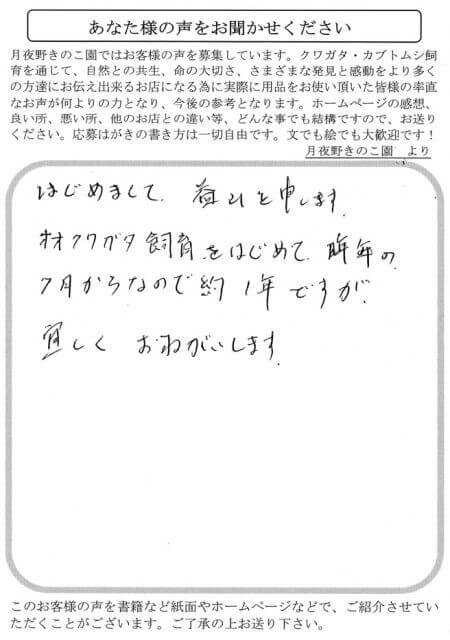 あなた様の声をお聞かせください
月夜野きのこ園ではお客様の声を募集しています。クワガタ・カブトムシ飼
育を通じて、自然との共生、命の大切さ、さまざまな発見と感動をより多く
の方達にお伝え出来るお店になる為に実際に用品をお使い頂いた皆様の率直
なお声が何よりの力となり、今後の参考となります。ホームページの感想、
良い所、悪い所、他のお店との違い等、どんな事でも結構ですので、お送り
ください。応募はがきの書き方は一切自由です。文でも絵でも大歓迎です！
月夜野きのこ園　より
はじめまして、と申します。
オオクワガタ飼育をはじめて、昨年の
7月からなので約1年ですが、
宜しく おねがいします。
このお客様の声を書籍など紙面やホームページなどで、ご紹介させてい
ただくことがございます。ご了承の上お送り下さい。